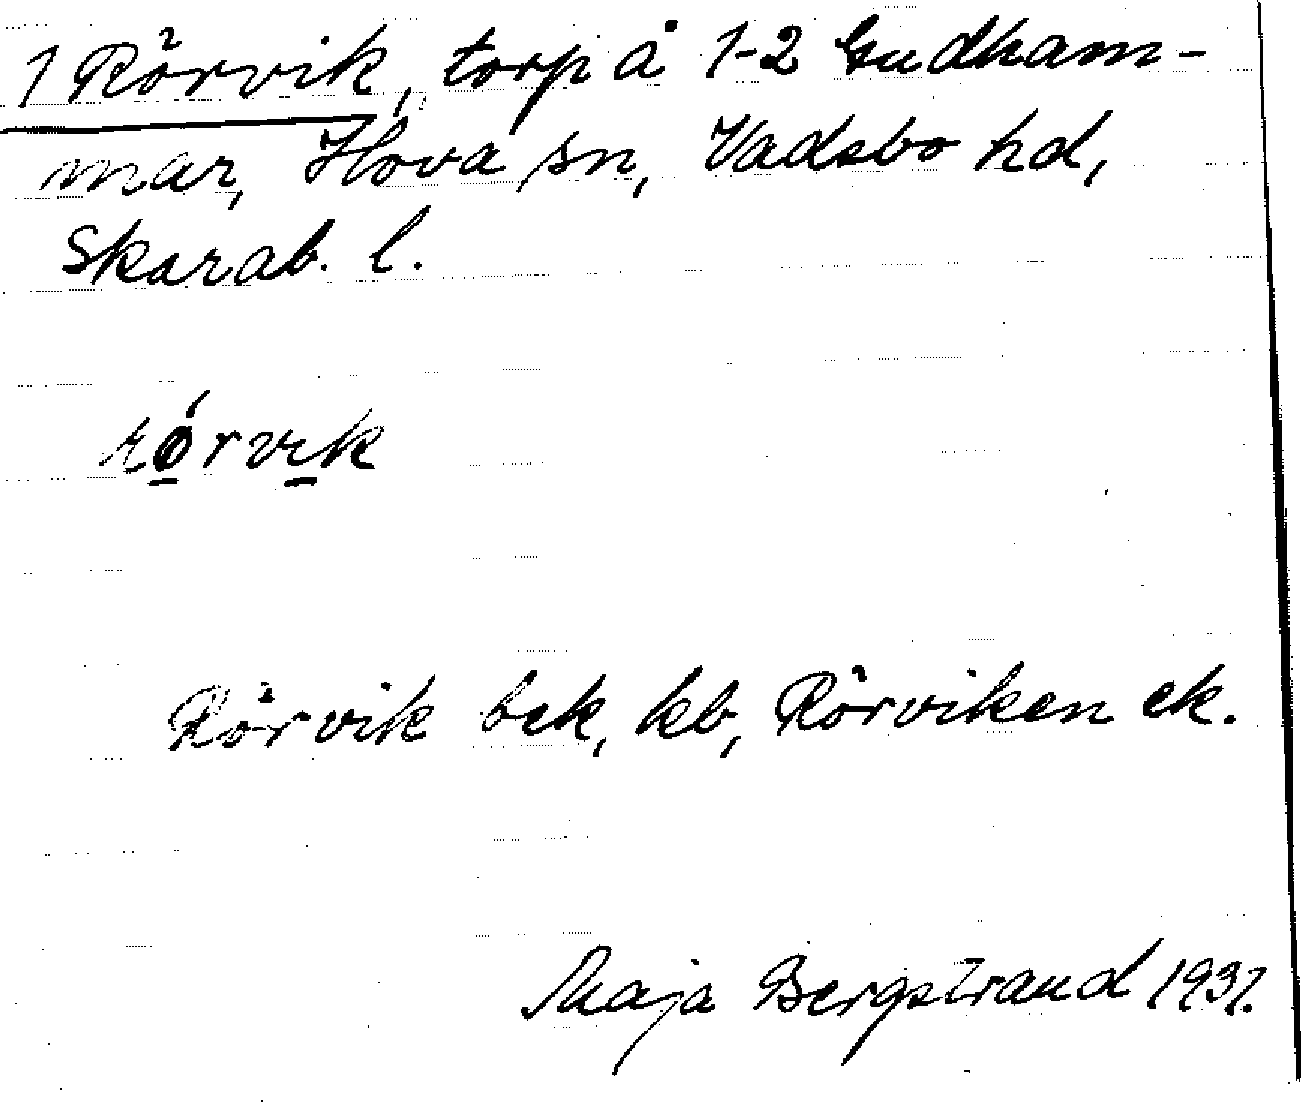 1 Rörvik, torp å 1-2 Gudham-
mar, Hova sn, Vadsbo hd,
Skarab. l.
rǿrvik
Rörvik bek, kb, Rörviken ek.
Maja Bergstrand 1937.